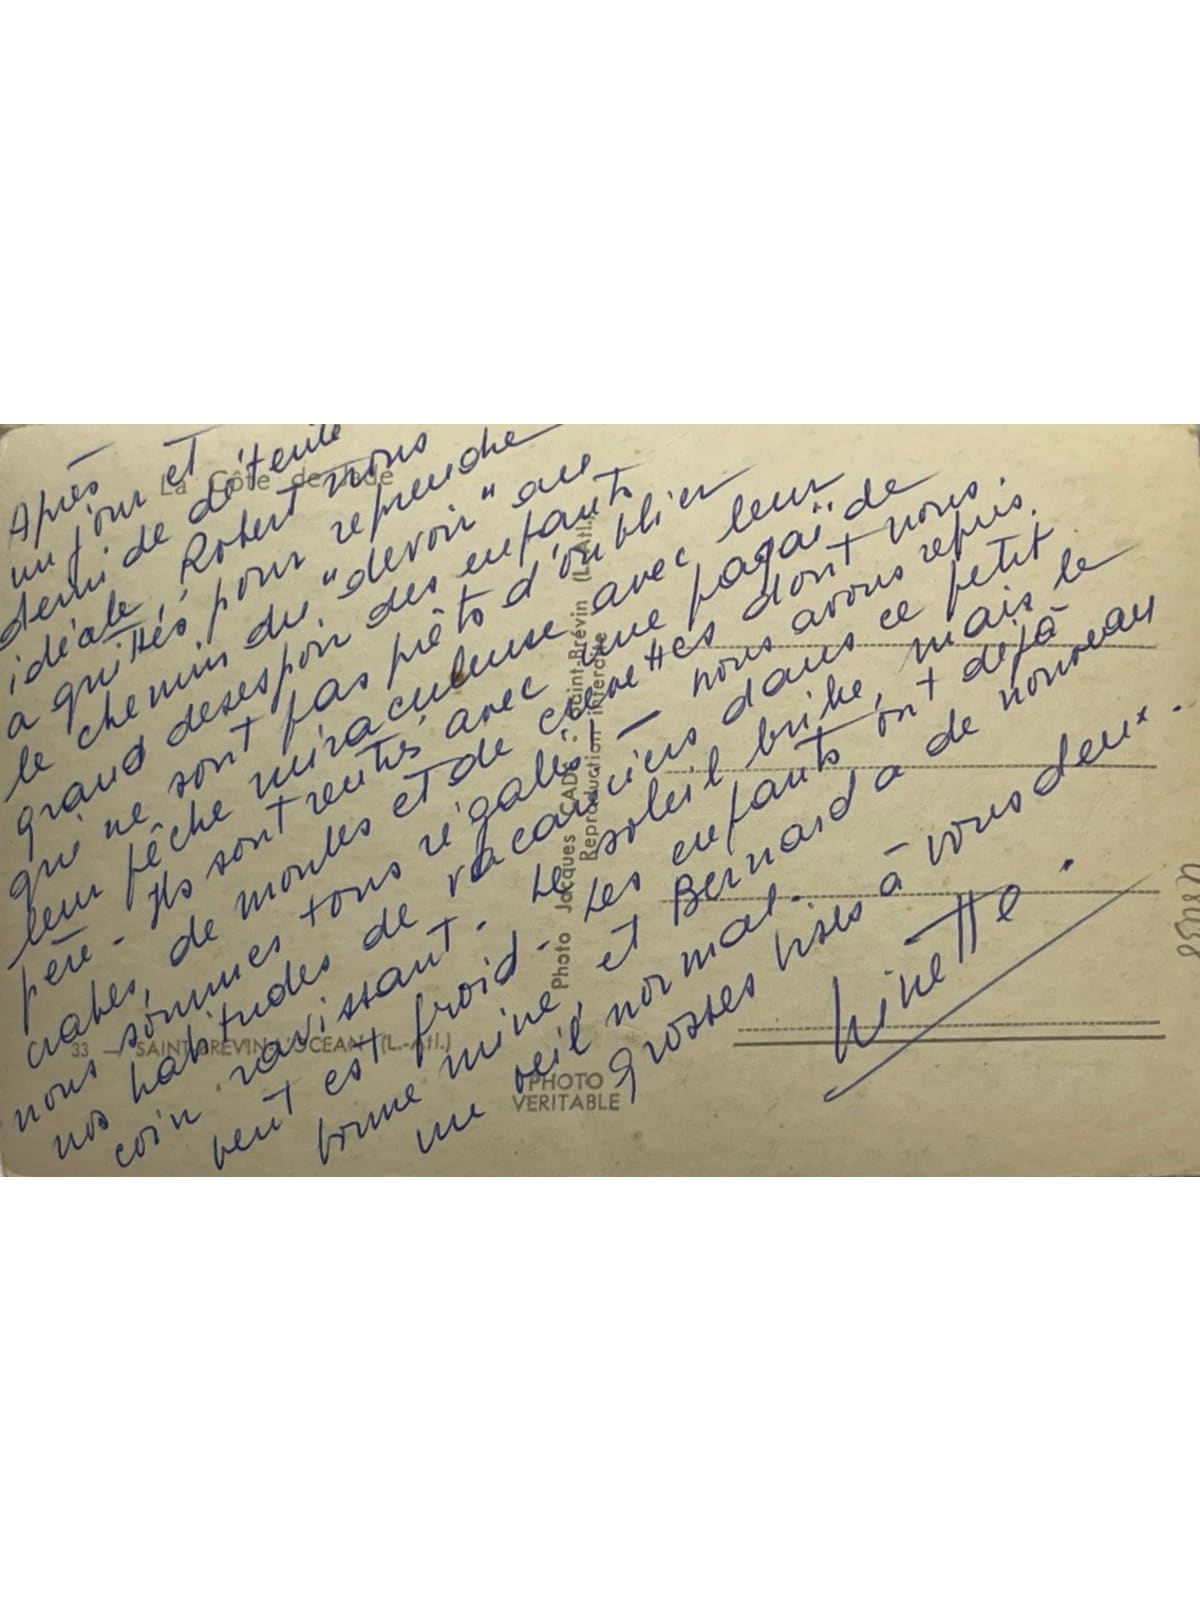 Après
un jour et
demi de détente
idéale, Robert nous
a quittés pour reprendre
le chemin du "devoir" au
grand desespoir des enfants
qui ne sont pas prêts d'oublier
leur pêche miraculeuse avec leur
père - Ils sont rentrés avec une pagaïe de
crabes, de moules et de crevettes dont nous
nous sommes tous régalés - nous avons repris
nos habitudes de vacanciers dans ce petit
coin ravissant - Le soleil brille, mais le
vent est froid - Les enfants ont déjà
bonne mine, et Bernard a de nouveau
un œil normal.
grosses bises à vous deux.
La Côte de Jade
33 — SAINT-BRÉVIN-L'OCÉAN (L.-Atl.)
Photo Jacques CADE - Saint-Brévin (L.-Atl.)
Reproduction interdite
PHOTO
VERITABLE